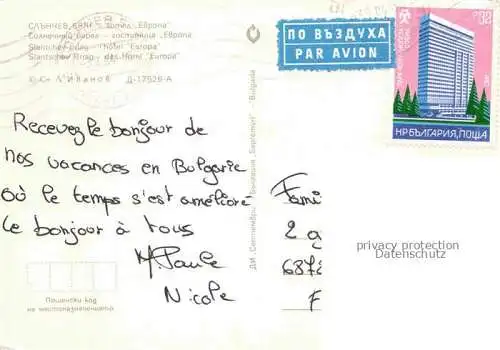 СЛЪНЧЕВ БРЯГ - Хотел „Европа"
Солнечный берег - гостиница „Европа"
Slantchev briag - l'hôtel "Europa"
Slantschev Brjag - das Hotel "Europa"
© Ст. Л. Иванов Д-17526-А
ПО ВЪЗДУХА
PAR AVION
НР БЪЛГАРИЯ, ПОЩА
Recevez le bonjour de
nos vacances en Bulgarie
où le temps s'est amélioré
le bonjour à tous
M. Paule
Nicole
Fami
2 a
6872
F
privacy protection
Datenschutz
Пощенски код
на местоназначението
ДИ „Септември" - България „Березиум" - Bulgaria